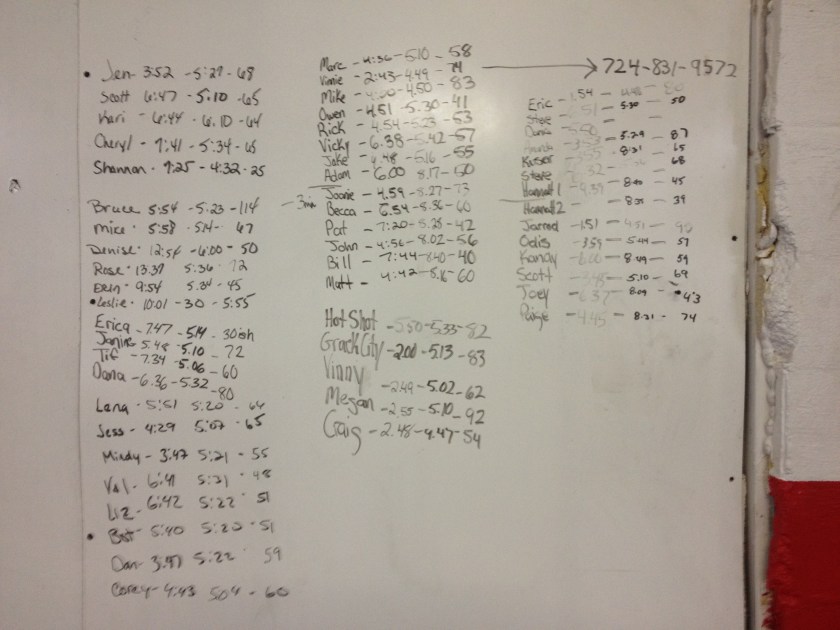 Jen - 3:52 - 5:27 - 68
Scott 6:47 - 5:10 - 65
Kari - 6:44 - 6.10 - 64
Cheryl - 7:41 - 5:34 - 65
Shannon - 9:25 - 4:32 - 25
Bruce 5:54 - 5:23 - 114
Mice - 5:58 67
Denise 12:54 - 6:00 - 50
Rose 13:37 5:36 72
Erin 9:54 5:34 - 45
Leslie 10:01 - 30 - 5:55
Erica 7:47 - 5:14 - 30ish
Janine 5:48 - 5.10 - 72
Tif - 7.34 5.06 - 60
Dana - 6.36 - 5.32 - 80
Lana - 5:51 5:20 - 64
Jess - 4:29 5:07 - 65
Mindy - 3:47 5:21 - 55
Val - 6:41 5:21 - 48
Liz - 6:42 5:22 51
5:40 5:20 - 51
Dan - 3:47 5:22 59
Corey - 4:43 504 - 60
Marc - 4:36 - 5.10 - 58
Vinnie - 2:43 - 4.49 - 74
Mike - 4.50 - 83
Owen - 4.51 - 5.30 - 41
Rick - 4.54 - 5.23 - 53
Vicky - 6.38 - 5.42 - 57
Jake - 4.48 - 5.16 - 55
Adam - 6.00 8.17 - 60
Joanie - 4.59 - 8.27 - 73
Becca - 6.54 - 8.36 - 60
Pat - 7:20 - 5.28 - 42
John - 4:56 - 8.02 - 56
Bill - 7:44 - 8:40 - 40
Matt - 4:42 - 60
Hot Shot - 5:50 - 5.33 - 82
Crack City - 2.00 - 5.13 - 83
Vinny - 2.49 - 5.02 - 62
Megan - 2.55 - 5.10 - 92
Craig - 2.48 - 4.47 - 54
724-831-9572
Eric - 1.54 - 80
Steve 5:30 - 50
Dana - -
5.29 - 87
Kaiser 8:21 - 65
Steve 68
Hannah 1 - 4.39 - 45
Hannah 2 - 39
Jarrod - 1.51 - 4.51 - 90
Odis - 3.59 - 5.44 - 57
Kanay - 6.00 - 8.49 - 59
Scott - 5.10 - 69
Joey - 6.37 - 8.09 - 43
Paige - 4.45 - 8.21 - 74